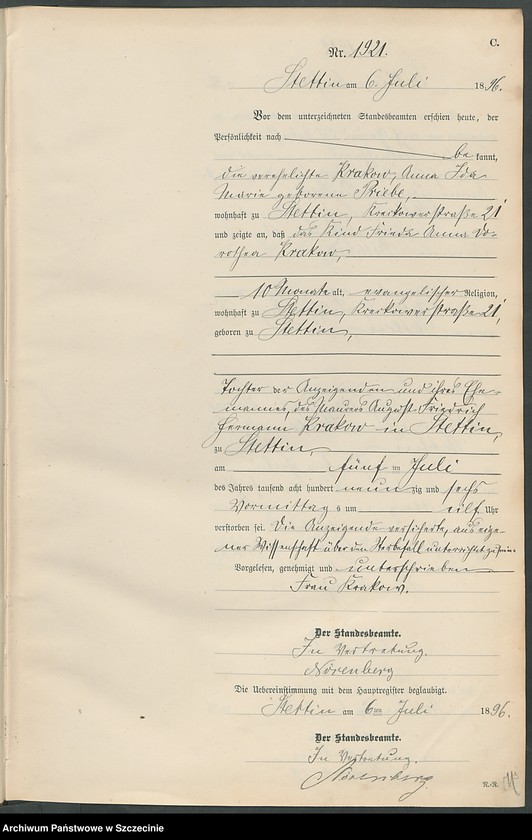 C.
Nr. 1921.
Stettin am 6. Juli 1896.
Vor dem unterzeichneten Standesbeamten erschien heute, der
Persönlichkeit nach
bekannt,
die verehelichte Krakow, Anna Ida
Marie geborene Priebe,
wohnhaft zu Stettin, Kreckowerstraße 21,
und zeigte an, daß das Kind Frieda Anna Do-
rothea Krakow,
10 Monate alt, evangelischer Religion,
wohnhaft zu Stettin, Kreckowerstraße 21,
geboren zu Stettin,
Tochter der Anzeigenden und ihres Ehe-
mannes, des Maurers August Friedrich
Hermann Krakow in Stettin,
zu Stettin,
am fünf ten Juli
des Jahres tausend acht hundert neun zig und sechs
Vormittags um eilf Uhr
verstorben sei. Die Anzeigende versicherte, aus eige-
ner Wissenschaft über den Sterbefall unterrichtet zu sein.
Vorgelesen, genehmigt und unterschrieben
Frau Krakow.
Der Standesbeamte.
In Vertretung.
Nörenberg
Die Uebereinstimmung mit dem Hauptregister beglaubigt.
Stettin am 6ten Juli 1896.
Der Standesbeamte.
In Vertretung.
Nörenberg.
N.-R.
Archiwum Państwowe w Szczecinie